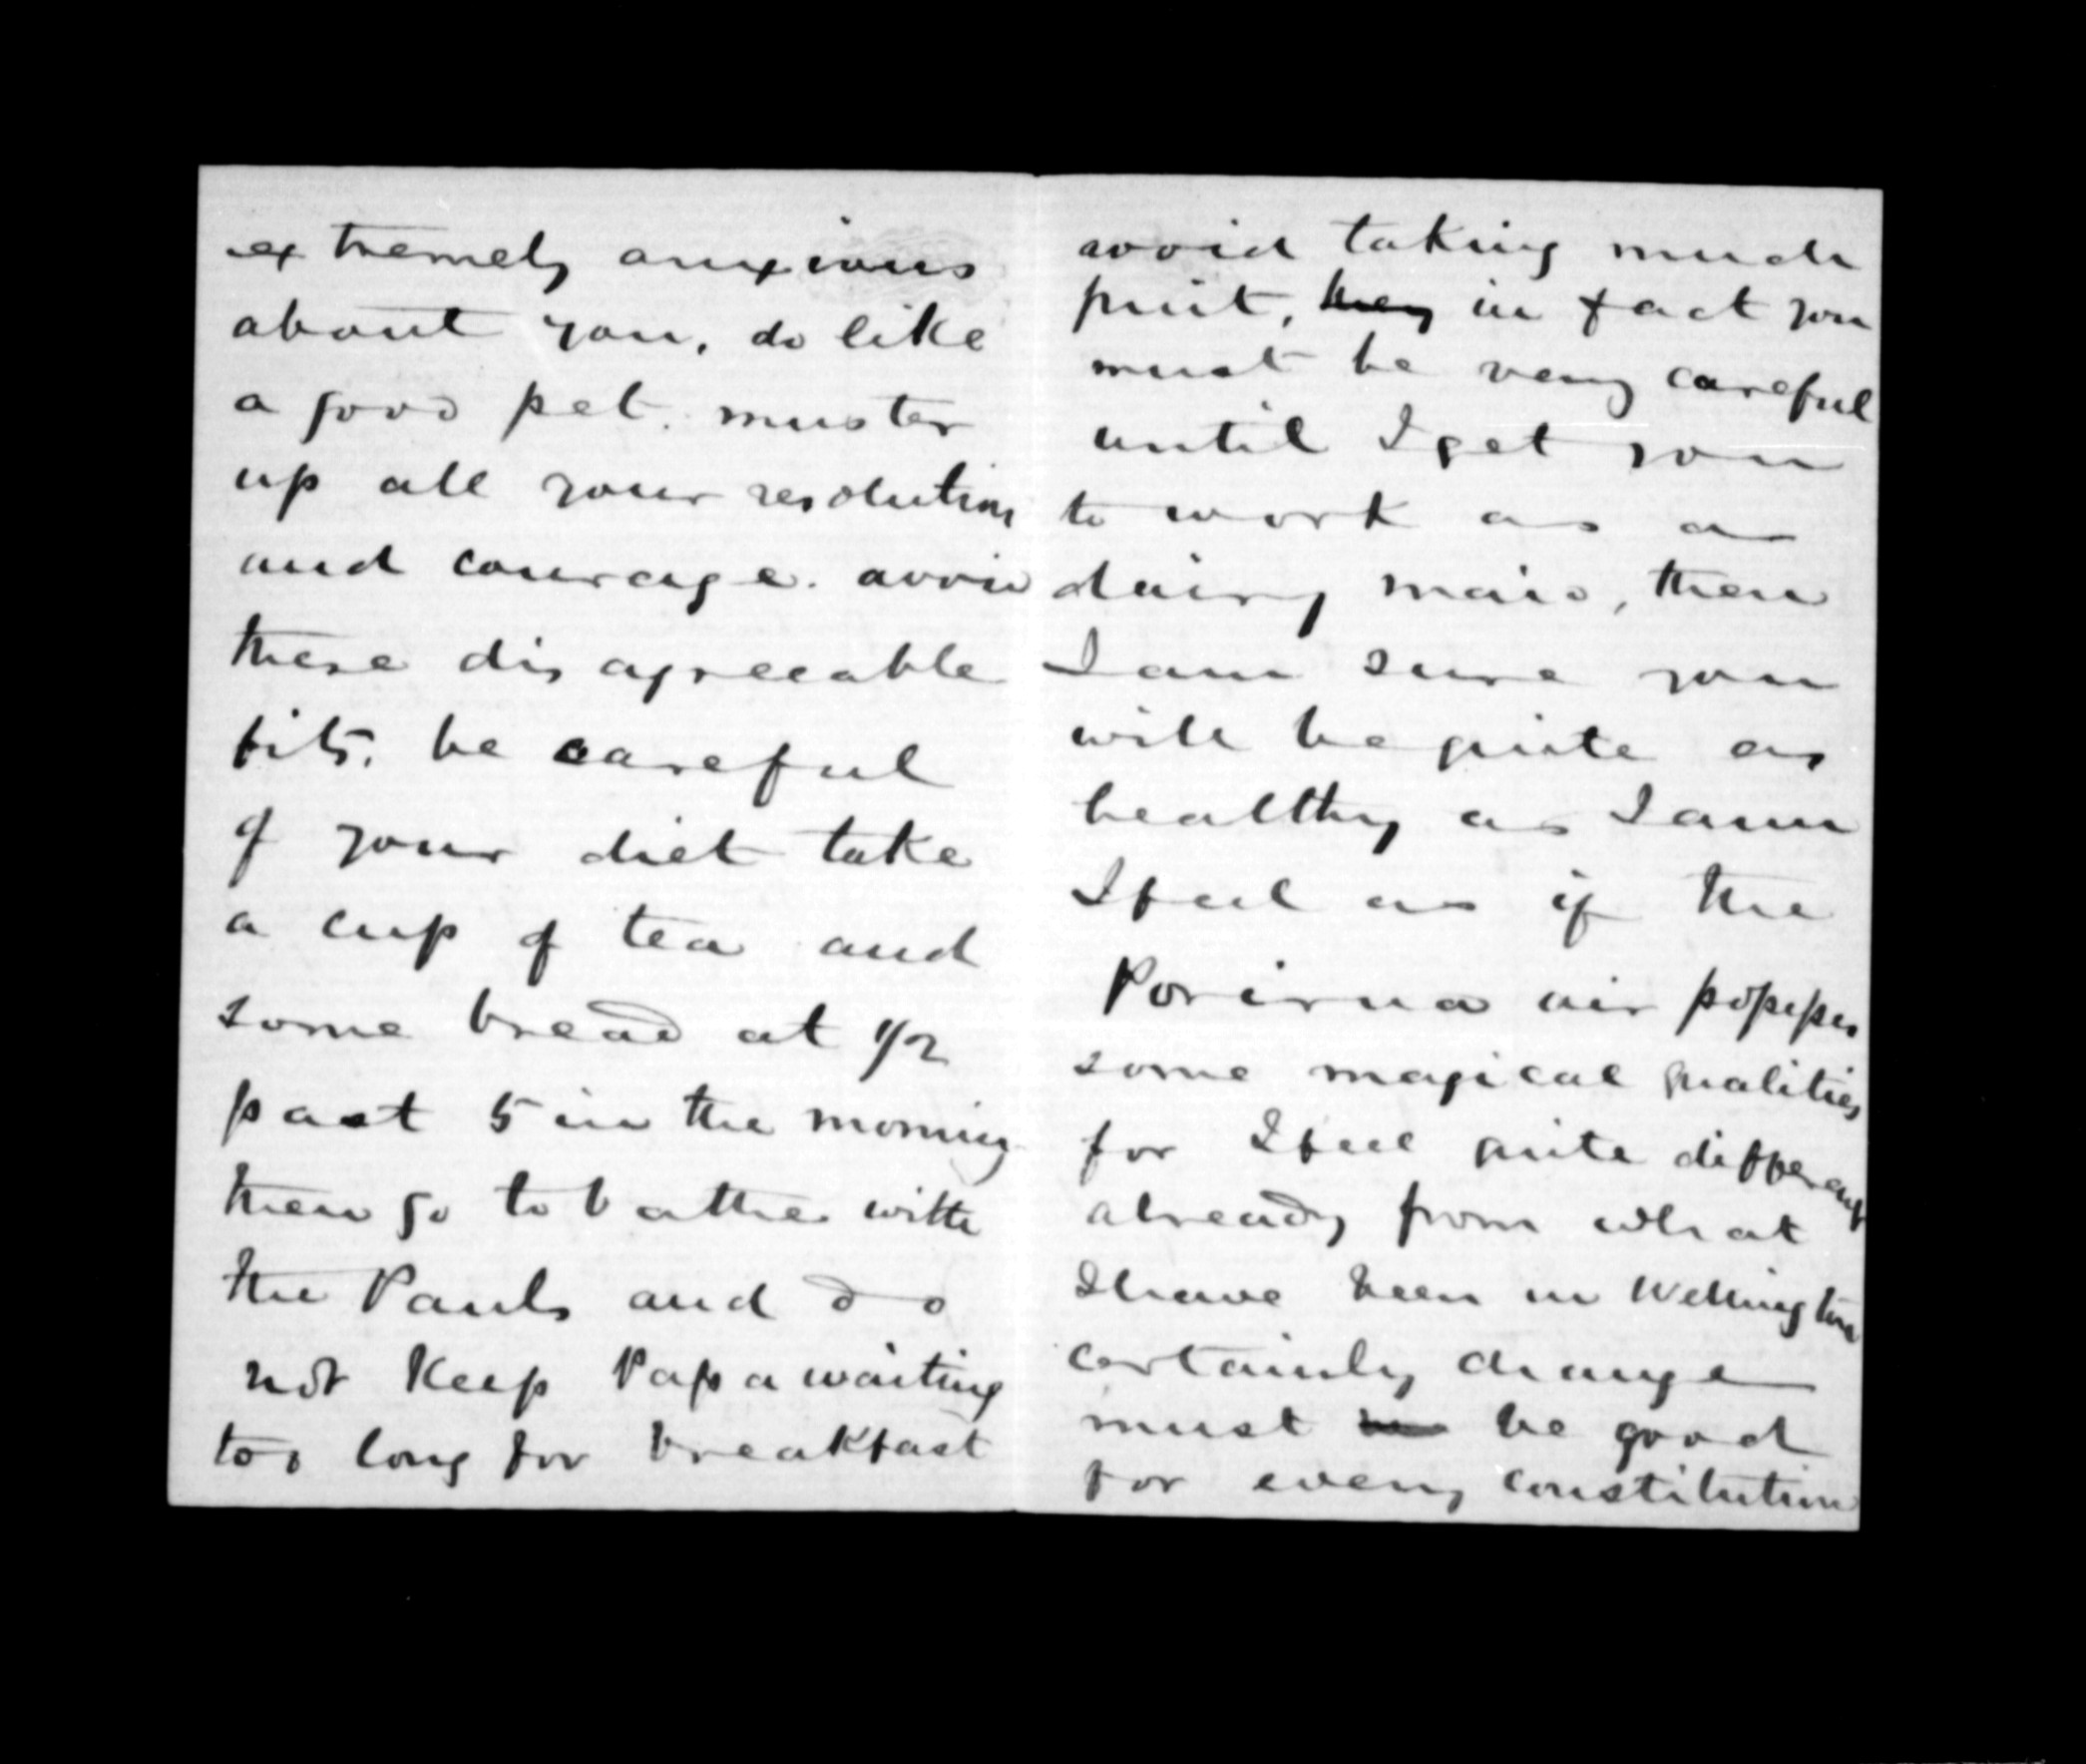 extremely anxious
about you, do like
a good pet. muster
up all your resolution
and courage. avoid
these disagreeable
fits, be careful
of your diet take
a cup of tea and
some bread at 1/2
past 5 in the morning
then go to bathe with
the Pauls and do
not Keep Papa waiting
too long for breakfast
avoid taking much
fruit, they in fact you
must be very careful
until I get you
to work as a
dairy maid, then
I am sure you
will be quite as
healthy as I am
I feel as if the
Porirua air possesses
some magical qualities
for I feel quite different
already from what
I have been in Wellington
certainly change
must be good
for every constitution